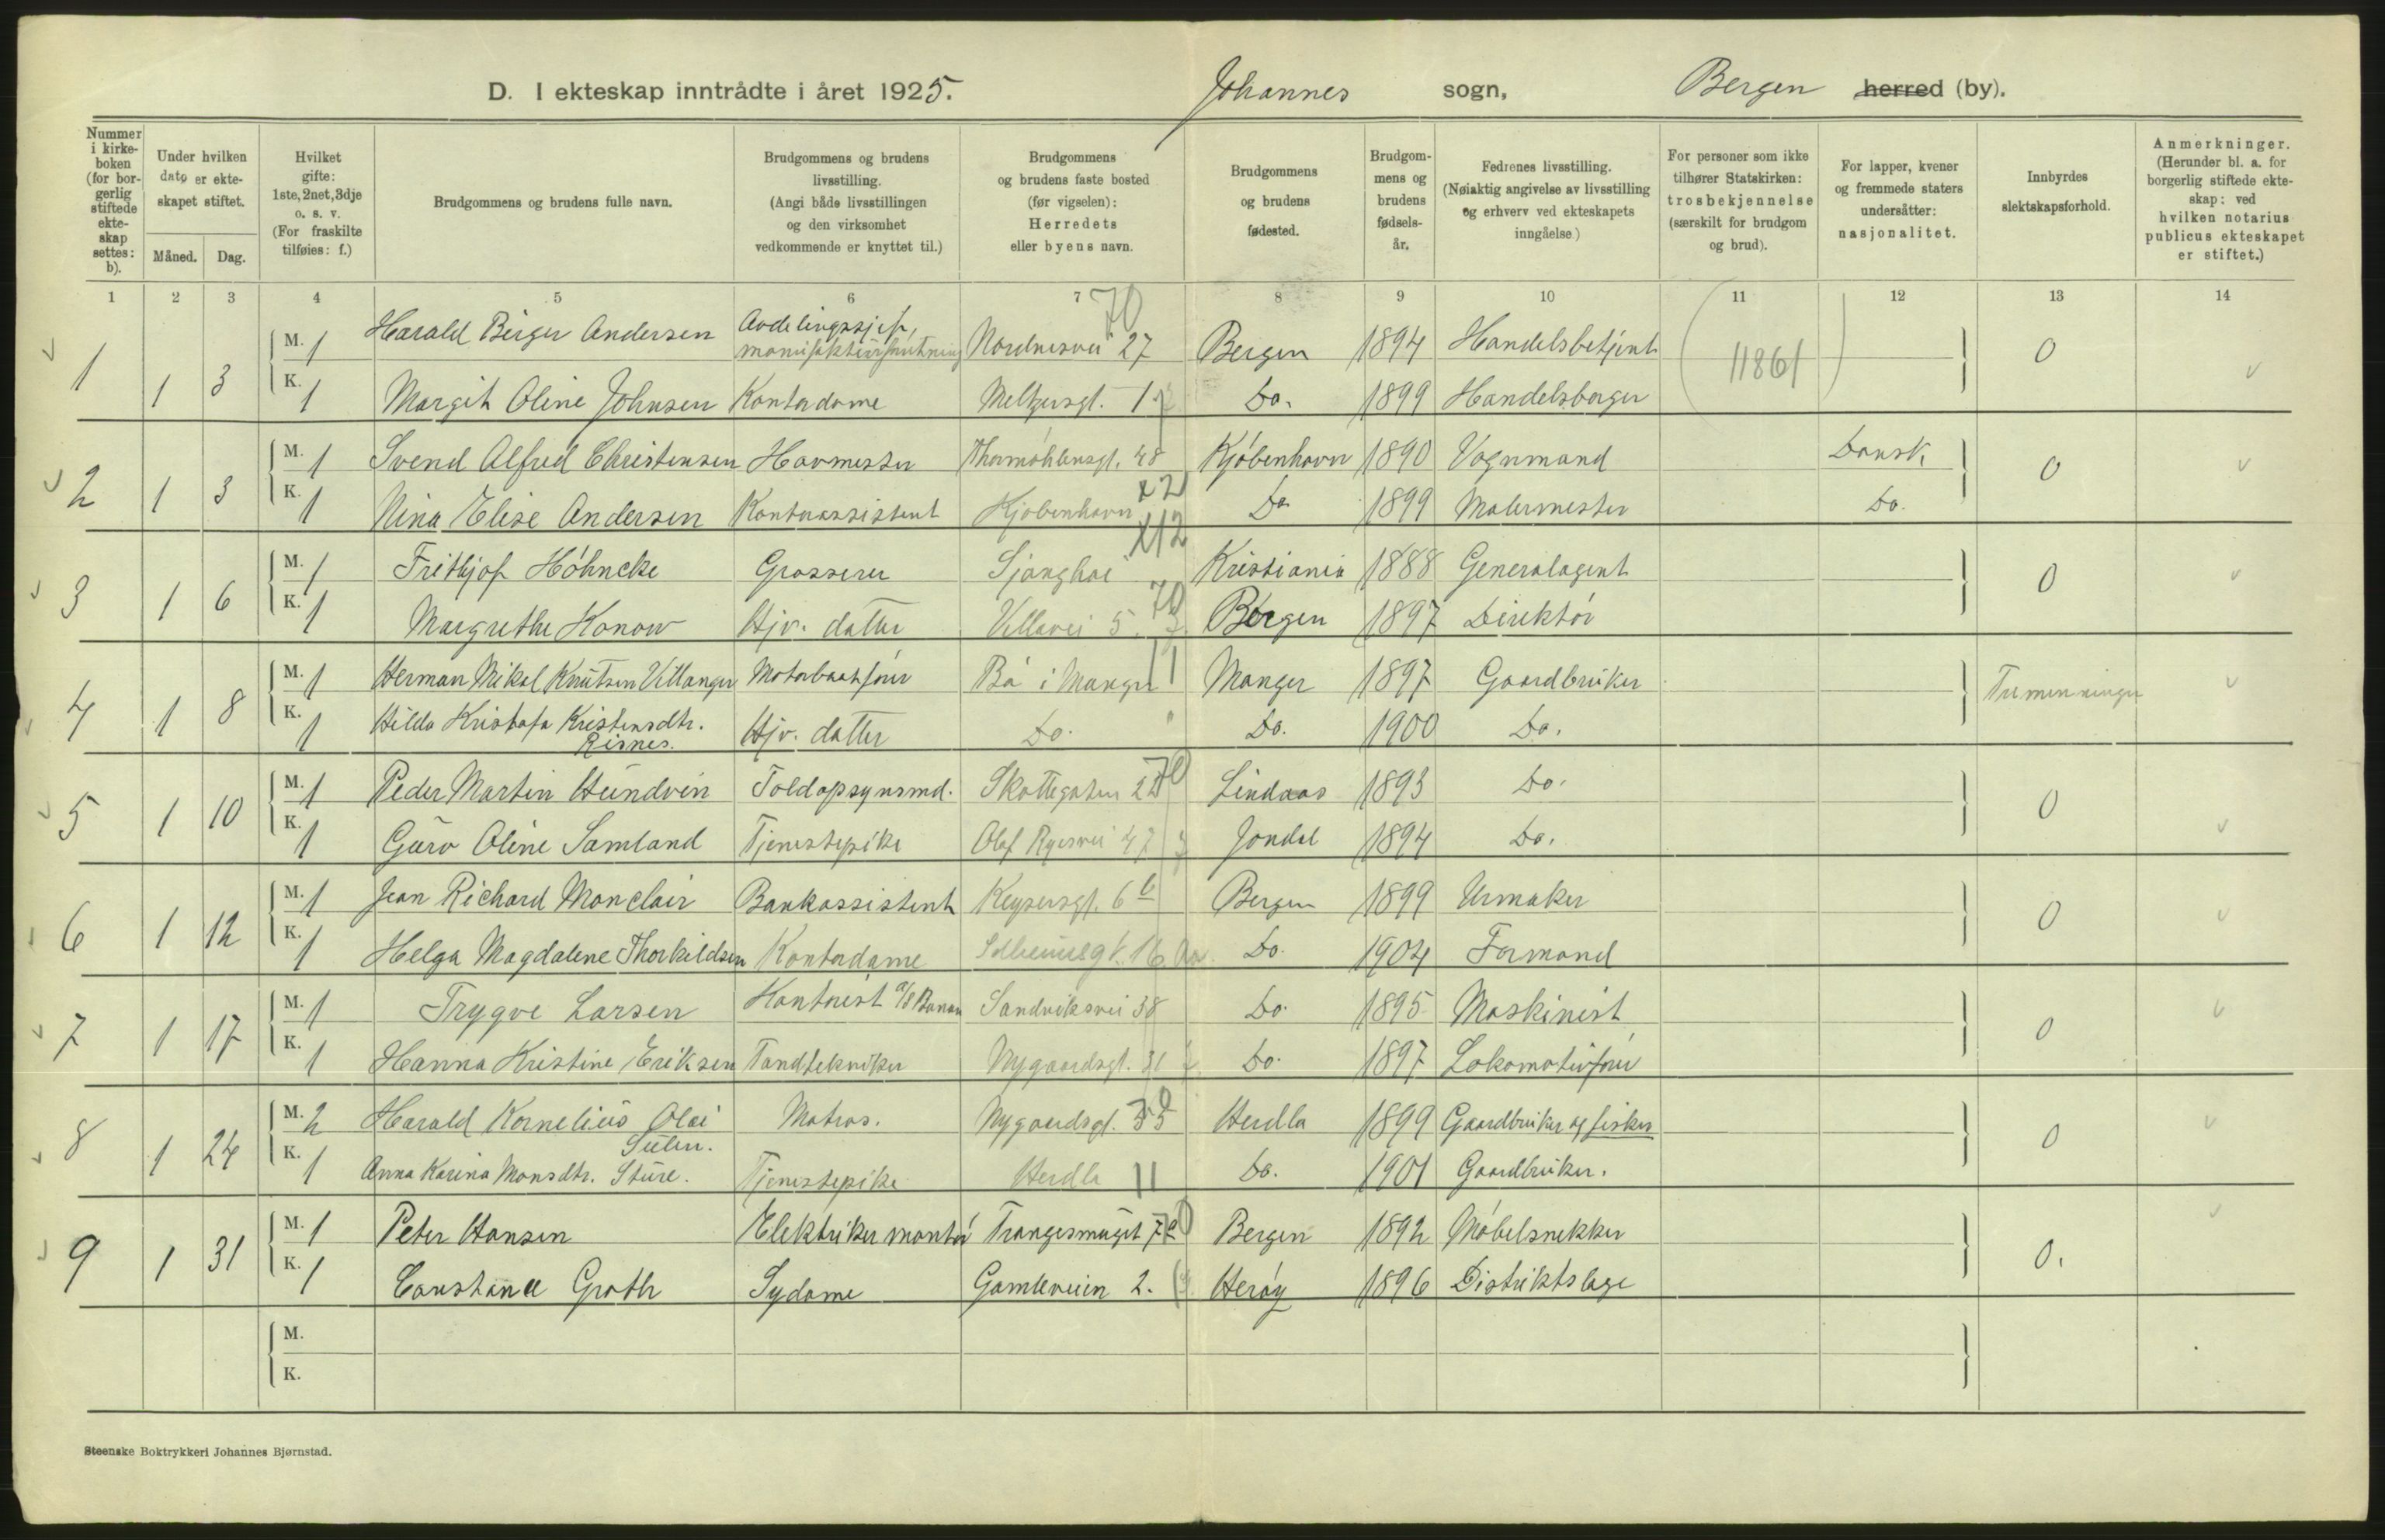 D. I ekteskap inntrådte i året 1925. Johannes sogn, Bergen herred (by).
Nummer i kirke-boken (for bor-gerlig stiftede ekte-skap settes: b).
Under hvilken dato er ekte-skapet stiftet.
Måned. Dag.
Hvilket gifte: 1ste, 2net, 3dje o. s. v. (For fraskilte tilføies: f.)
Brudgommens og brudens fulle navn.
Brudgommens og brudens livsstilling. (Angi både livsstillingen og den virksomhet vedkommende er knyttet til.)
Brudgommens og brudens faste bosted (før vigselen): Herredets eller byens navn.
Brudgommens og brudens fødested.
Brudgom-mens og brudens fødsels-år.
Fedrenes livsstilling. (Nøiaktig angivelse av livsstilling og erhverv ved ekteskapets inngåelse.)
For personer som ikke tilhører Statskirken: trosbekjennelse (særskilt for brudgom og brud).
For lapper, kvener og fremmede staters undersåtter: nasjonalitet.
Innbyrdes slektskapsforhold.
Anmerkninger. (Herunder bl. a. for borgerlig stiftede ekte-skap: ved hvilken notarius publicus ekteskapet er stiftet.)
1 2 3 4 5 6 7 8 9 10 11 12 13 14
70
1 1 3 M. 1 Harald Birger Andersen Avdelingssjef, Nordnesvei 27 Bergen 1894 Handelsbetjent (11861) 0
K. 1 Margit Oline Johnsen Kontordame Meltzersgt. Do. 1899 Handelsborger
2 1 3 M. 1 Svend Alfred Christensen Hovmester Thormöhlensgt. 48 Kjöbenhavn 1890 Vognmand Dansk 0
K. 1 Nina Elise Andersen Kontorassistent Kjöbenhavn x2 Do. 1899 Malermester Do.
3 1 6 M. 1 Frithjof Höhncke Grosserer Sjanghai x12 Kristiania 1888 Generalagent 0
K. 1 Margrethe Konow Hjv. datter Villavei 5. 70 Bergen 1897 Direktör
4 1 8 M. 1 Herman Mikal Knutsen Villanger Motorbaatförer Bö i Manger 11 Manger 1897 Gaardbruker Tremenninger
K. 1 Hilda Kristofa Kristensdtr. Risnes. Hjv. datter Do. " Do. 1900 Do.
5 1 10 M. 1 Peder Martin Hundvin Toldopsynsmd. Skottegaten 70 Lindaas 1893 Do. 0
K. 1 Guro Oline Samland Tjenestepike Olaf Ryesvei 47 Jondal 1894 Do.
6 1 12 M. 1 Jean Richard Monclair Bankassistent Keysersgt. 6 b Bergen 1899 Urmaker 0
K. 1 Helga Magdalene Thorkildsen Kontordame Solheimsgt. 16 Do. 1904 Formand
7 1 17 M. 1 Trygve Larsen Kontorist a/s Banan Sandviksvei 38 Do. 1895 Maskinist 0
K. 1 Hanna Kristine Eriksen Tandtekniker Nygaardsgt. 31 Do. 1897 Lokomotivförer
8 1 24 M. 2 Harald Kornelius Olai Matros. Nygaardsgt. Herdla 1899 Gaardbruker og fisker 0
K. 1 Anna Karina Monsdtr. Sture. Tjenestepike Herdla 11 Do. 1901 Gaardbruker.
9 1 31 M. 1 Peter Hansen Elektriker montör Trangesmuget Bergen 1892 Möbelsnekker 0.
K. 1 Constance Groth Sydame Gamleveien 2. Heröy 1896 Distriktslæge
M.
K.
Steenske Boktrykkeri Johannes Bjørnstad.